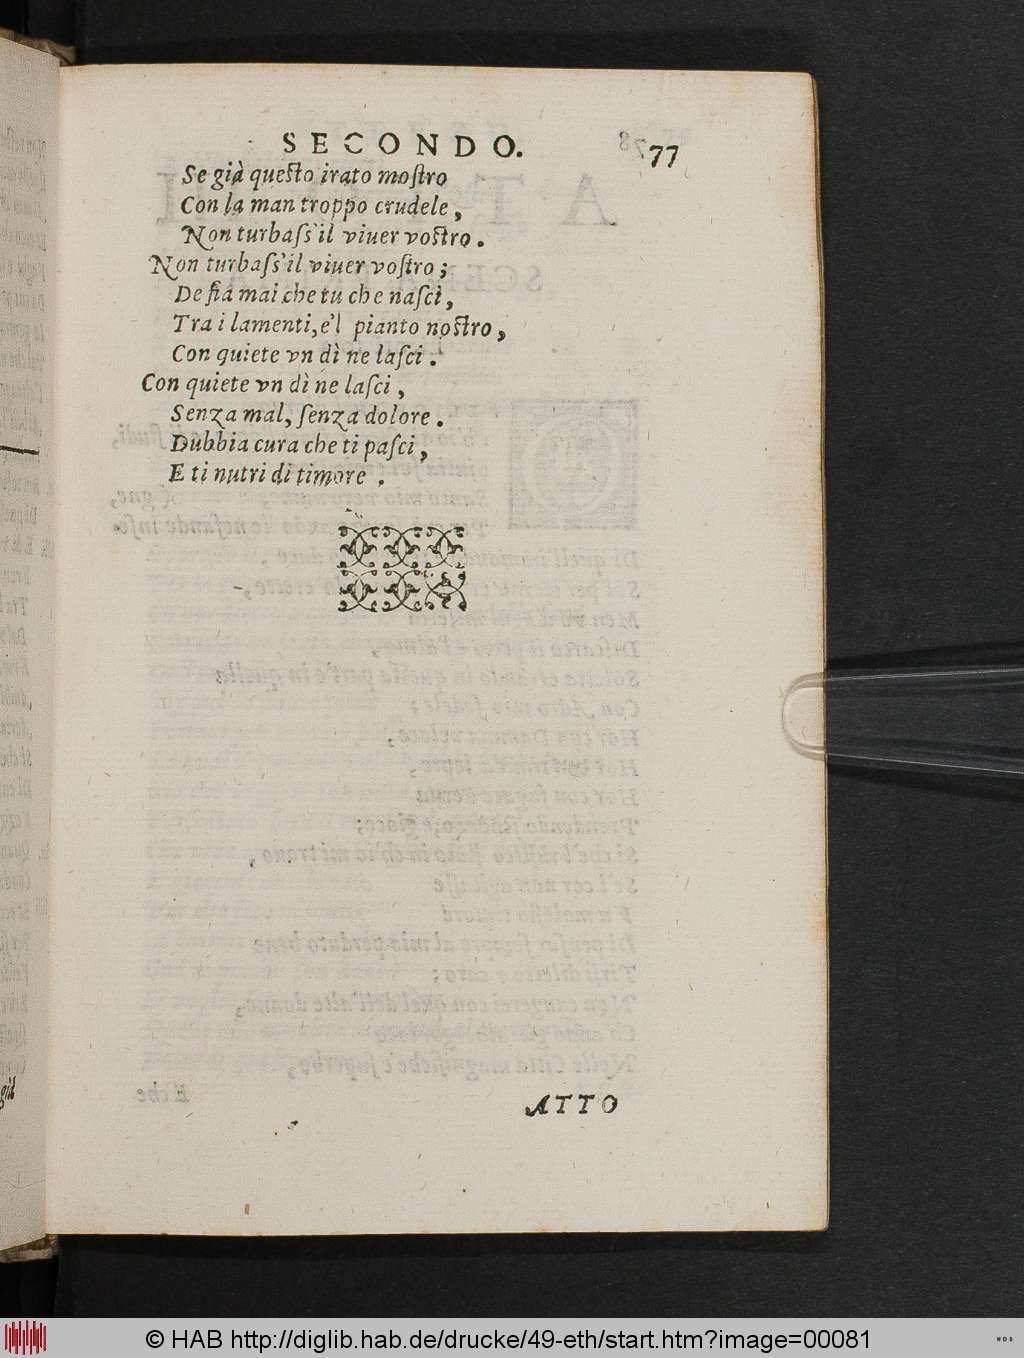 SECONDO. 77
Se già queſto irato moſtro
Con la man troppo crudele,
Non turbaſs'il viuer voſtro.
Non turbaſs'il viuer voſtro;
De fia mai che tu che naſci,
Tra i lamenti, e'l pianto noſtro,
Con quiete vn dì ne laſci.
Con quiete vn dì ne laſci,
Senza mal, ſenza dolore.
Dubbia cura che ti paſci,
E ti nutri di timore.
ATTO
© HAB http://diglib.hab.de/drucke/49-eth/start.htm?image=00081